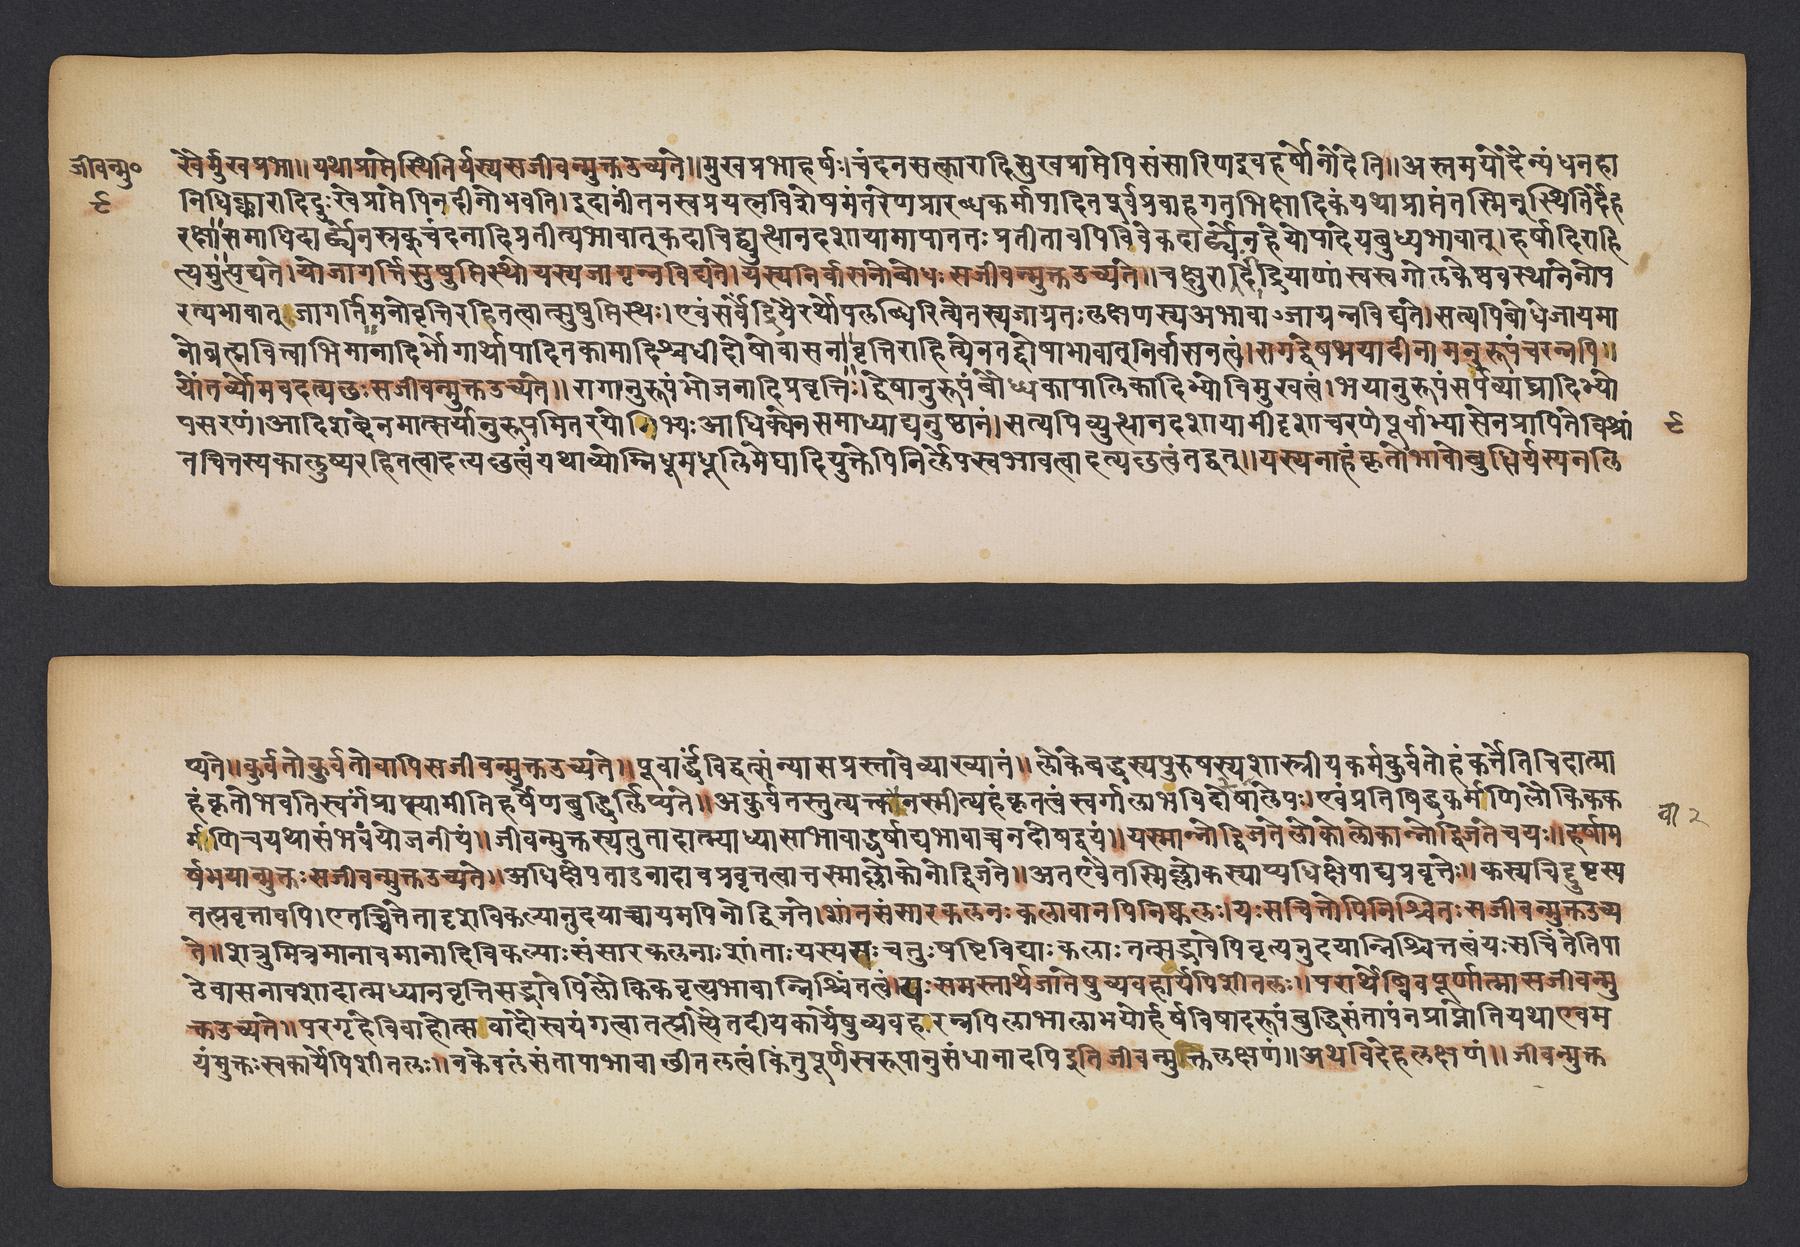 जीवन्मु॰
९
खेर्मुखप्रभा॥यथाप्राप्तेस्थितिर्यस्यसजीवन्मुक्तउच्यते॥मुखप्रभाहर्षः।चंदनसत्कारादिसुखप्राप्तेपिसंसारिणइवहर्षोनोदेति॥अस्तमयोदैन्यंधनहा
निधिक्कारादिदुःखेप्राप्तेपिनदीनोभवति।इदानींतनस्वप्रयत्नविशेषमंतरेणप्रारब्धकर्मापादितपूर्वप्रवाहगतभिक्षादिकंयथाप्राप्तंतस्मिन्स्थितिर्देह
रक्षा।समाधिदार्ढ्येनस्रक्चंदनादिप्रतीत्यभावात्कदाचिद्व्युत्थानदशायामापाततःप्रतीतावपिविवेकदार्ढ्येनहेयोपादेयबुध्यभावात्।हर्षादिराहि
त्यमुत्पद्यते।योजागर्त्तिसुषुप्तिस्थोयस्यजाग्रन्नविद्यते।यस्यनिर्वासनोबोधःसजीवन्मुक्तउच्यते॥चक्षुरादींद्रियाणांस्वस्वगोलकेष्ववस्थानेनोप
रत्यभावात्जागर्तिमनोवृत्तिरहितत्वात्सुषुप्तिस्थः।एवंसर्वेंद्रियैरर्थोपलब्धिरित्येतस्यजाग्रतःलक्षणस्यअभावाऽजाग्रन्नविद्यते।सत्यपिबोधेजायमा
नोब्रह्मवित्त्वाभिमानादिर्भोगार्थापादितकामादिश्चधीदोषोवासनावृत्तिराहित्येनतद्दोषाभावात्निर्वासनत्वं।रागद्वेषभयादीनामनुरूपंचरन्नपि॥
योंतर्व्योमवदत्यछःसजीवन्मुक्तउच्यते॥रागानुरूपंभोजनादिप्रवृत्तिः।द्वेषानुरूपंबौध्धकापालिकादिभ्योविमुखत्वं।भयानुरूपंसर्पव्याघ्रादिभ्यो
पसरणं।आदिशब्देनमात्सर्यानुरूपमितरयोगिभ्यःआधिक्येनसमाध्याद्यनुष्ठानं।सत्यपिव्युत्थानदशायामीदृशाचरणेपूर्वाभ्यासेनप्रापितेविश्रां
९
तचित्तस्यकालुष्यरहितत्वादत्यछत्वंयथाव्योम्निधूमधूलिमेघादियुक्तेपिनिर्लेपस्वभावत्वादत्यछत्वंतद्वत्॥यस्यनाहंकृतोभावोबुद्धिर्यस्यनलि
प्यते॥कुर्वतोकुर्वतोवापिसजीवन्मुक्तउच्यते॥पूर्वार्द्धंविद्वत्संन्यासप्रस्तावेव्याख्यातं॥लोकेबद्धस्यपुरुषस्यशास्त्रीयकर्मकुर्वतोहंकर्त्तेतिचिदात्मा
हंकृतोभवतिस्वर्गंप्राप्स्यामीतिहर्षेणबुद्धिर्लिप्यते॥अकुर्वतस्तुत्यक्तवानस्मीत्यहंकृतत्वंस्वर्गालाभविदोषांलेपः।एवंप्रतिषिद्धकर्माणिलौकिकक
वा २
र्माणिचयथासंभवंयोजनीयं॥जीवन्मुक्तस्यतुतादात्म्याध्यासाभावाद्धर्षाद्यभावाच्चनदोषद्वयं॥यस्मान्नोद्विजतेलोकोलोकान्नोद्विजतेचयः॥हर्षाम
र्षभयान्मुक्तःसजीवन्मुक्तउच्यते॥अधिक्षेपताडनादावप्रवृत्तत्वात्तस्माल्लोकोनोद्विजते॥अतएवैतस्मिल्लोकस्याप्यधिक्षेपाद्यप्रवृत्तेः॥कस्यचिद्दुष्टस्य
तत्प्रवृत्तावपि।एतच्चित्तेतादृशविकल्पानुदयाच्चायमपिनोद्विजते।शांतसंसारकलनःकलावानपिनिष्कलः।यःसचित्तोपिनिश्चित्तःसजीवन्मुक्तउच्य
ते॥शत्रुमित्रमानावमानादिविकल्पाःसंसारकलनाःशांताःयस्यसःचतुःषष्टिविद्याःकलाःतत्सद्भावेपिवृत्यनुदयान्निश्चित्तत्वंयःसचिंतेतिपा
ठेवासनावशादात्मध्यानवृत्तिसद्भावेपिलौकिकवृत्यभावान्निश्चिंतत्वं।यःसमस्तार्थजातेषुव्यवहार्यपिशीतलः॥परार्थेष्विवपूर्णात्मासजीवन्मु
क्तउच्यते॥परगृहेविवाहोत्सवादौस्वयंगत्वातत्प्रीत्यैतदीयकार्येषुव्यवहरन्नपिलाभालाभयोर्हर्षविषादरूपंबुद्धिसंतापंनप्राप्नोतियथाएवम
यंमुक्तःस्वकार्येपिशीतलः॥नकेवलंसंतापाभावाच्छीतलत्वंकिंतुपूर्णस्वरूपानुसंधानादपिइतिजीवन्मुक्तिलक्षणं॥अथविदेहलक्षणं॥जीवन्मुक्त